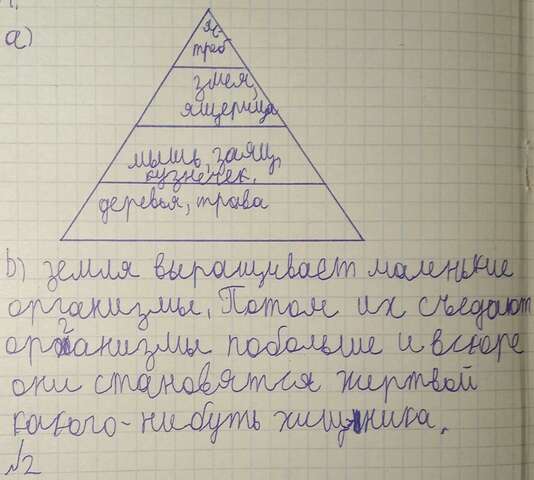 а)
яс-
треб
змея,
ящерица
мышь, заяц,
кузнечек.
деревья, трава
b) земля выращивает маленькие
организмы, Потом их съедают
организмы побольше и вскоре
они становятся жертвой
какого-нибуть хищника.
№2